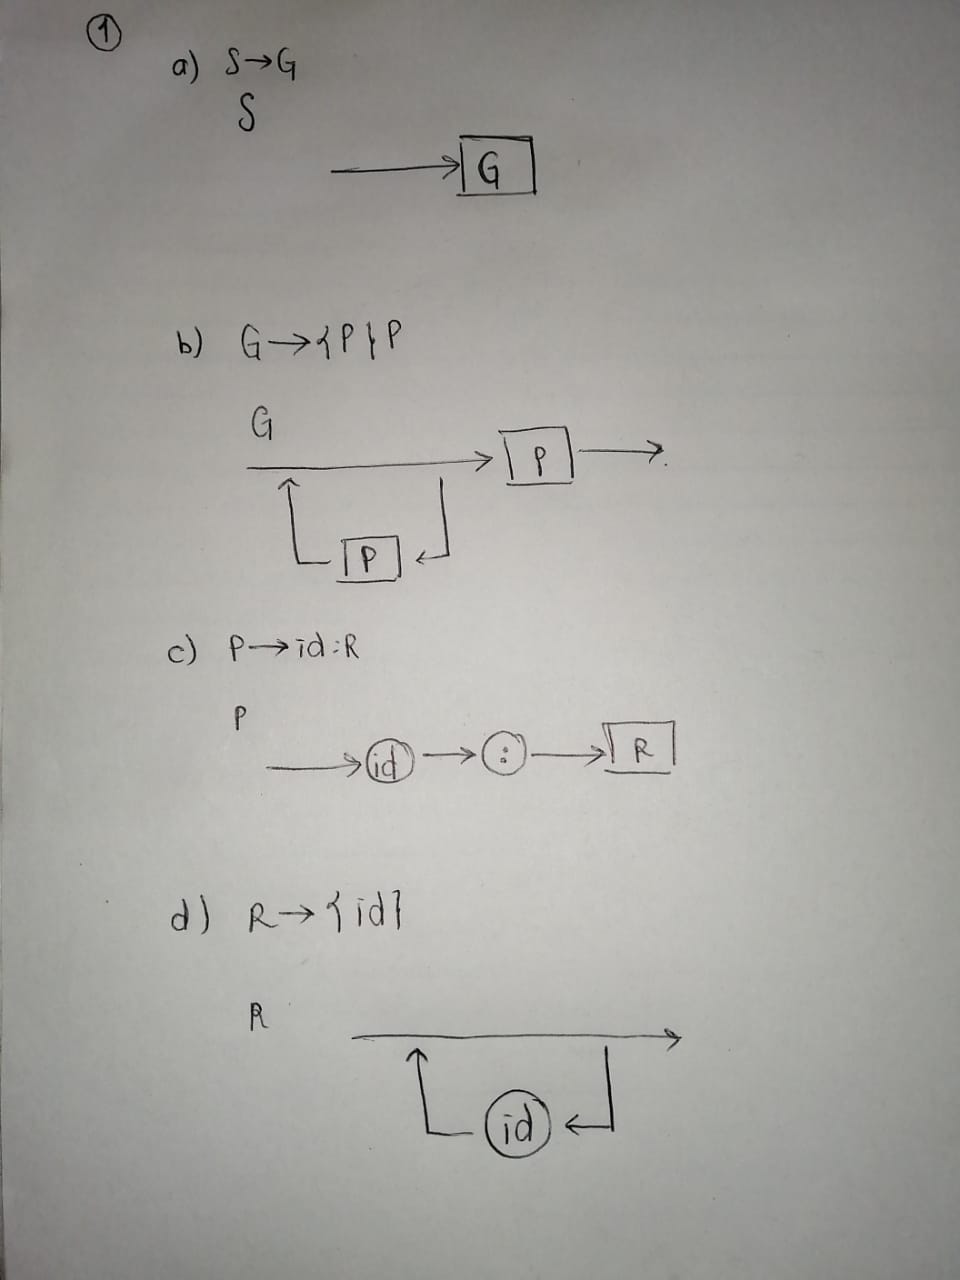 1
a) S→G
S
G
b) G→{P}P
G
P
P
c) P→id:R
P
id : R
d) R→{id}
R
id